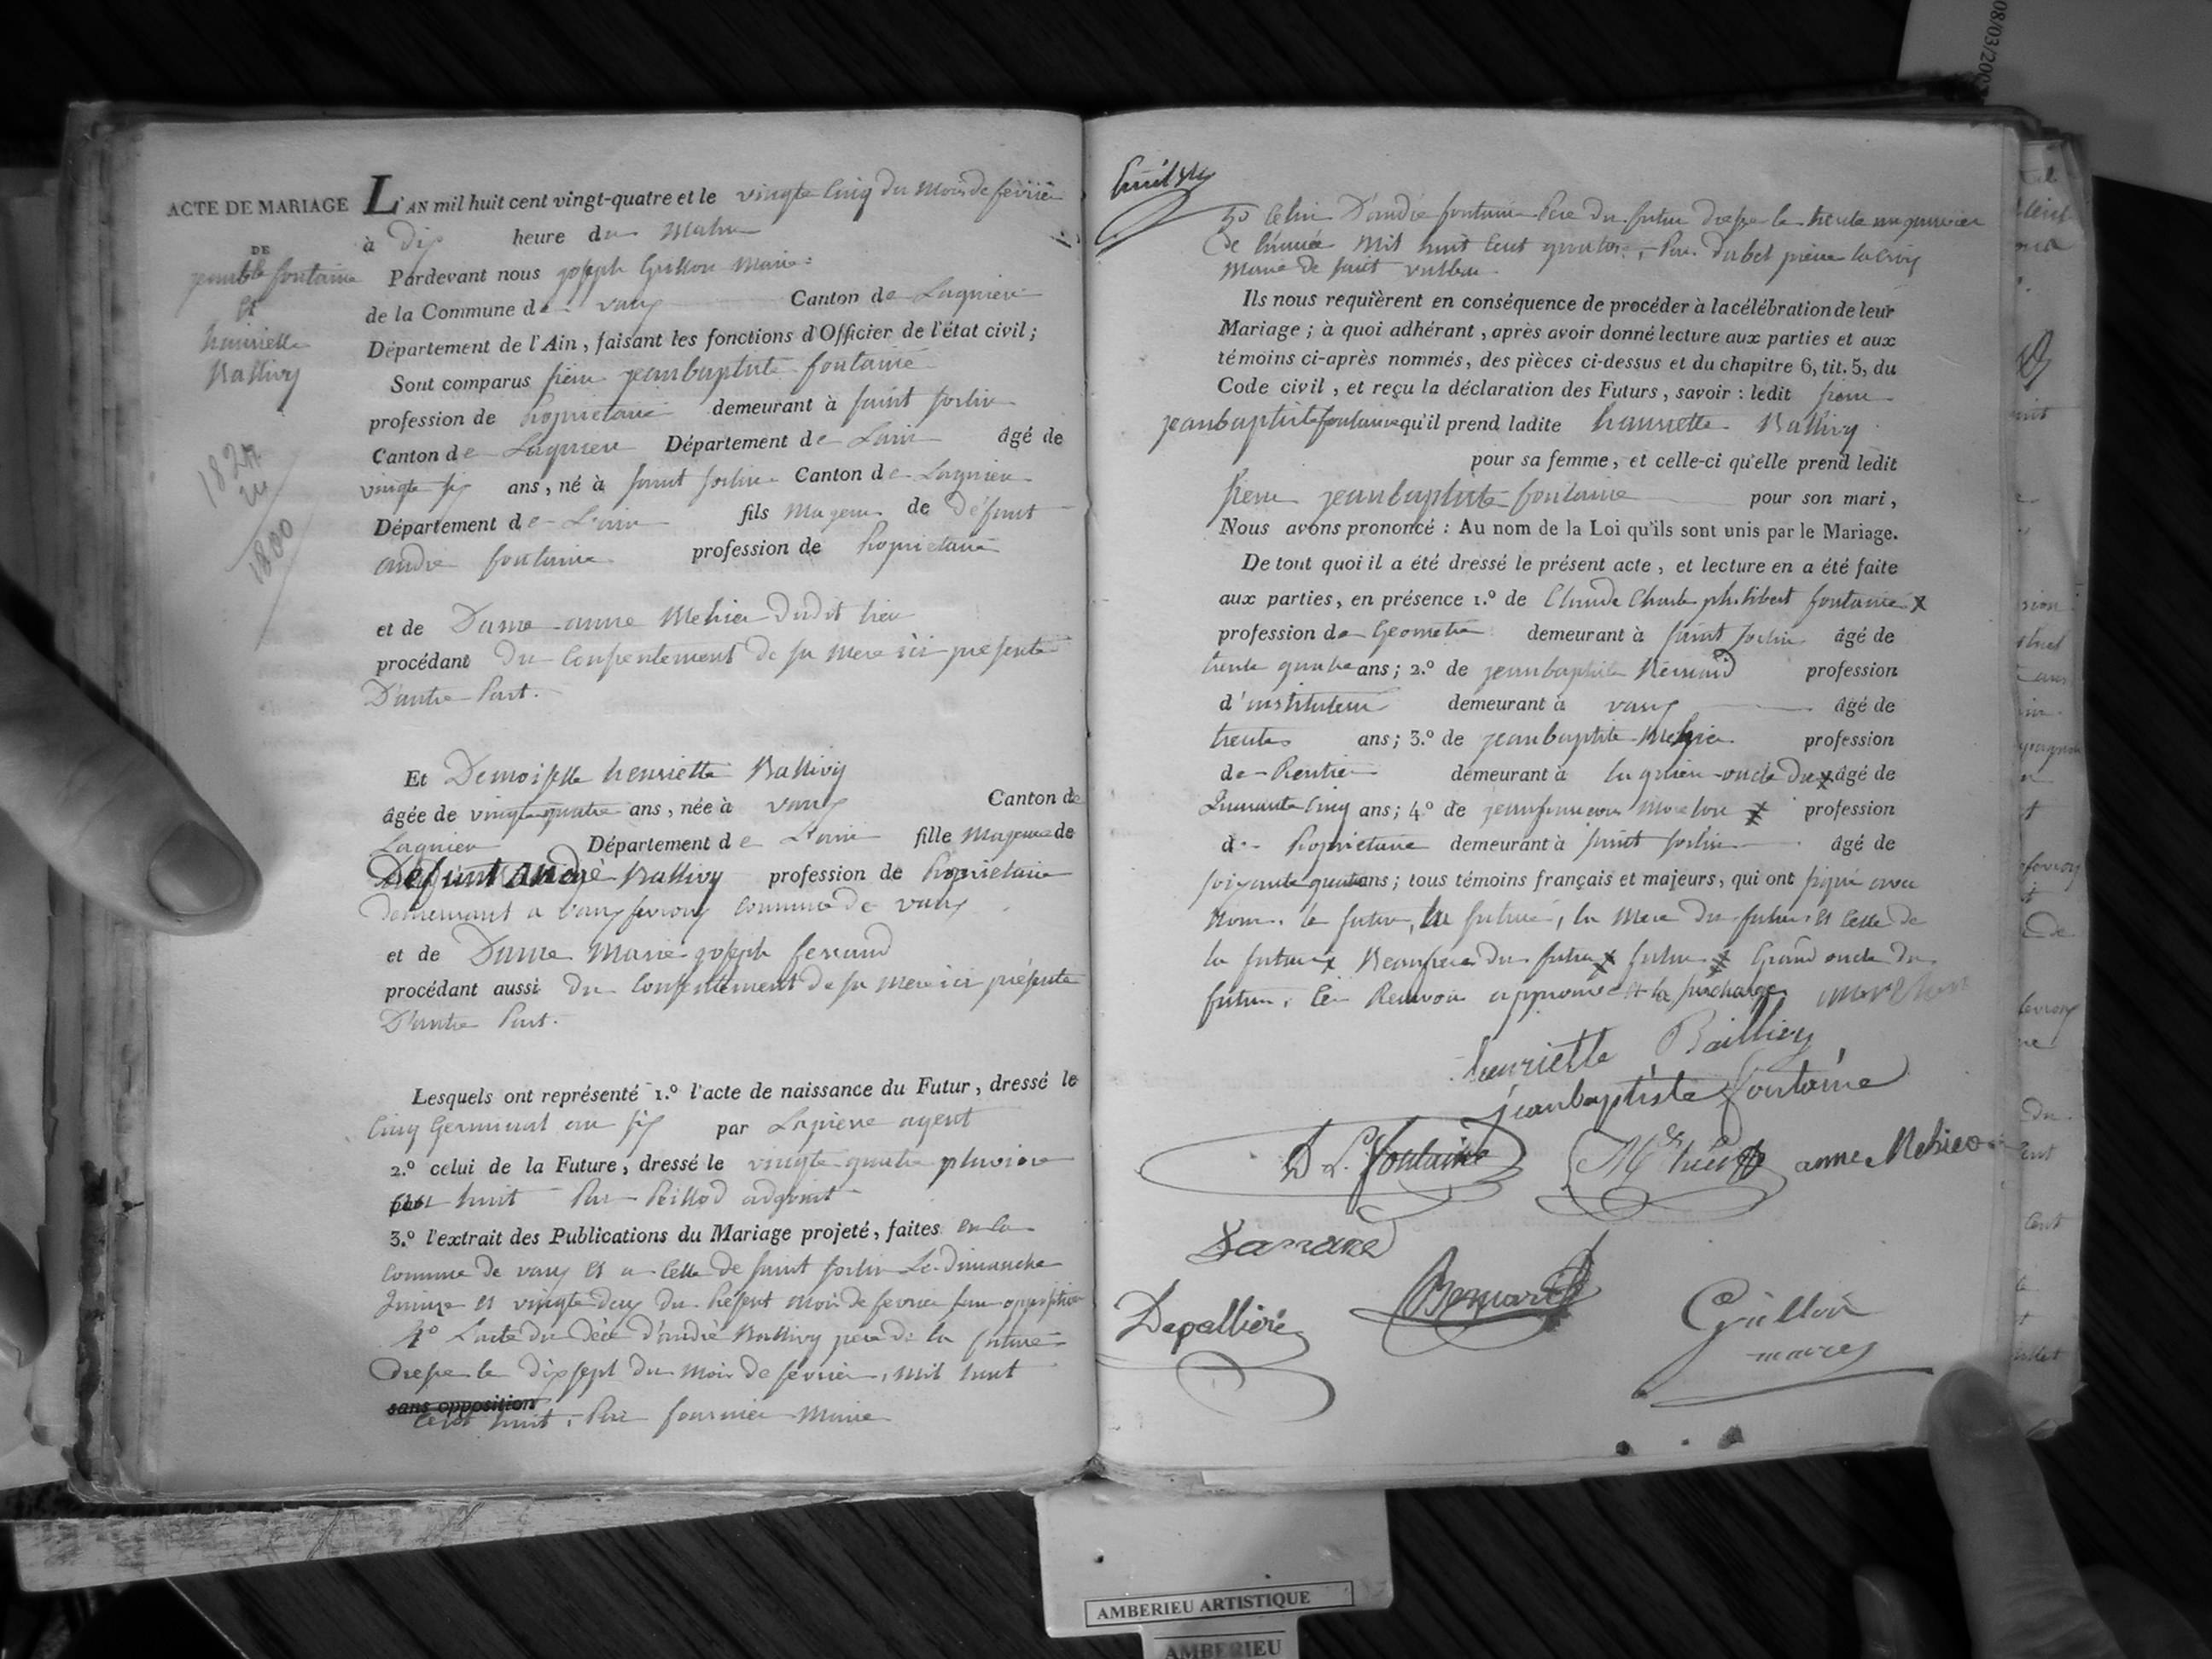 ACTE DE MARIAGE
DE
jeanbte fontaine
et
henriette
Ballivy
1824
1800
L'AN mil huit cent vingt-quatre et le vingte Cinq du Mois de fevrier
à dix heure du Matin
Pardevant nous joseph Guillon Maire
de la Commune de vaux Canton de Lagnieu
Département de l'Ain, faisant les fonctions d'Officier de l'état civil;
Sont comparus sieur jeanbaptiste fontaine
profession de Proprietaire demeurant à saint sorlin
Canton de Lagnieu Département de Lain âgé de
vingte six ans, né à saint sorlin Canton de Lagnieu
Département de L'ain fils Majeur de défunt
andre fontaine profession de Proprietaire
et de Dame anne Mehier dudit lieu
procédant du Consentement de sa mere ici presente
D'autre Part.
Et Demoiselle henriette Ballivy
âgée de vingte quatre ans, née à vaux Canton de
Lagnieu Département de L'ain fille Majeure de
Défunt André Ballivy profession de Proprietaire
demeurant a vaux fevroux commune de vaux
et de Dame Marie joseph ferrand
procédant aussi du Consentement de sa mere ici présente
D'autre Part.
Lesquels ont représenté 1.º l'acte de naissance du Futur, dressé le
Cinq Germinal an six par Lapierre agent
2.º celui de la Future, dressé le vingte quatre pluviose
huit Par Peillod adjoint
3.º l'extrait des Publications du Mariage projeté, faites en la
Commune de vaux et a Celle de saint sorlin Le dimanche
Quinze et vingte deux du Présent mois de fevrier sans opposition
4º L'acte du décè d'andré Ballivy pere de la future
dressé le dix sept du mois de fevrier, mil huit
sans opposition
Cent huit, Par fournier Maire
5º Celui D'andré fontaine Pere du futur dressé le trente un janvier
de L'année Mil huit Cent quatorze, Par Dubet pierre lacroix
Maire de saint vulbas
Ils nous requièrent en conséquence de procéder à la célébration de leur
Mariage; à quoi adhérant, après avoir donné lecture aux parties et aux
témoins ci-après nommés, des pièces ci-dessus et du chapitre 6, tit. 5, du
Code civil, et reçu la déclaration des Futurs, savoir: ledit sieur
jeanbaptiste fontaine qu'il prend ladite hanriette Ballivy
pour sa femme, et celle-ci qu'elle prend ledit
sieur jeanbaptiste fontaine pour son mari,
Nous avons prononcé: Au nom de la Loi qu'ils sont unis par le Mariage.
De tout quoi il a été dressé le présent acte, et lecture en a été faite
aux parties, en présence 1.º de Claude Charle philibert fontaine x
profession de Geometre demeurant à saint sorlin âgé de
trente quatre ans; 2.º de jeanbaptiste Bernard profession
d'instituteur demeurant à vaux âgé de
trente ans; 3.º de jeanbaptiste Mehier profession
de Rentier demeurant à Lagnieu oncle du x âgé de
Quarante Cinq ans; 4.º de jean francois x profession
de Proprietaire demeurant à saint sorlin âgé de
soixante quatre ans; tous témoins français et majeurs, qui ont signé avec
nous. le futur, la future, la mere du futur et Celle de
la future x Beaufrere du futur x futur x Grand oncle du
futur. Les Renvois approuvé et la surcharge
henriette Baillivy
jeanbaptiste fontaine
fontaine
anne Mehier
Depallière
Bernard
Guillon
maire
AMBERIEU ARTISTIQUE
AMBERIEU